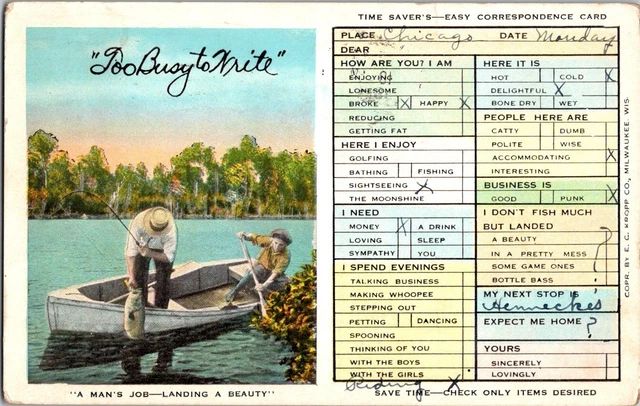 TIME SAVER'S—EASY CORRESPONDENCE CARD
"Too Busy to Write"
"A MAN'S JOB—LANDING A BEAUTY"
PLACE Chicago DATE Monday
DEAR
HOW ARE YOU? I AM
ENJOYING
LONESOME
BROKE X HAPPY X
REDUCING
GETTING FAT
HERE I ENJOY
GOLFING
BATHING FISHING
SIGHTSEEING X
THE MOONSHINE
I NEED
MONEY X A DRINK
LOVING SLEEP
SYMPATHY YOU
I SPEND EVENINGS
TALKING BUSINESS
MAKING WHOOPEE
STEPPING OUT
PETTING DANCING
SPOONING
THINKING OF YOU
WITH THE BOYS
WITH THE GIRLS
Riding X
HERE IT IS
HOT COLD X
DELIGHTFUL X
BONE DRY WET
PEOPLE HERE ARE
CATTY DUMB
POLITE WISE
ACCOMMODATING X
INTERESTING
BUSINESS IS
GOOD PUNK X
I DON'T FISH MUCH
BUT LANDED
A BEAUTY
IN A PRETTY MESS
SOME GAME ONES
BOTTLE BASS
?
MY NEXT STOP IS
Henneckes
EXPECT ME HOME ?
YOURS
SINCERELY
LOVINGLY
SAVE TIME—CHECK ONLY ITEMS DESIRED
COPR. BY E. C. KROPP CO., MILWAUKEE, WIS.